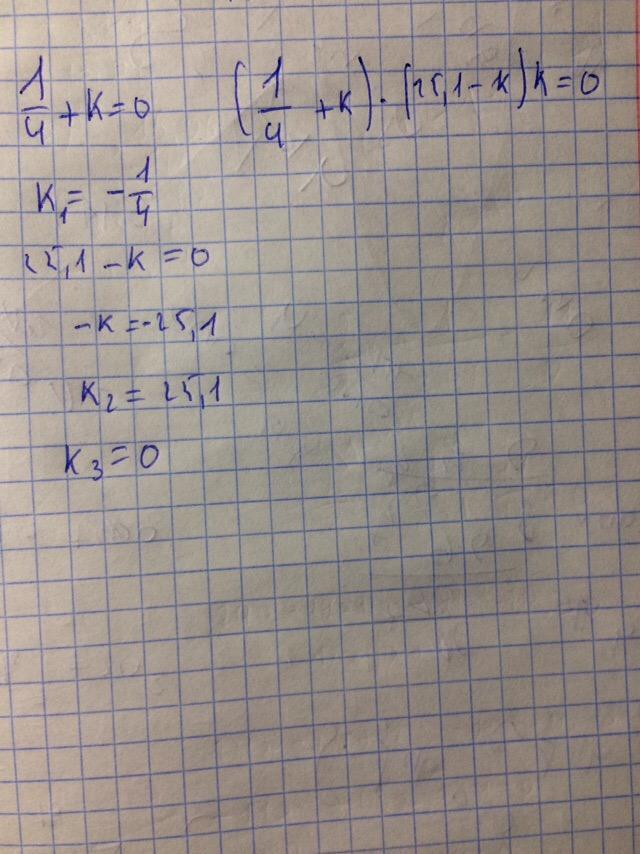 1/4 + K = 0
(1/4 + K) · (25,1 - K) K = 0
K₁ = - 1/4
25,1 - K = 0
-K = -25,1
K₂ = 25,1
K₃ = 0